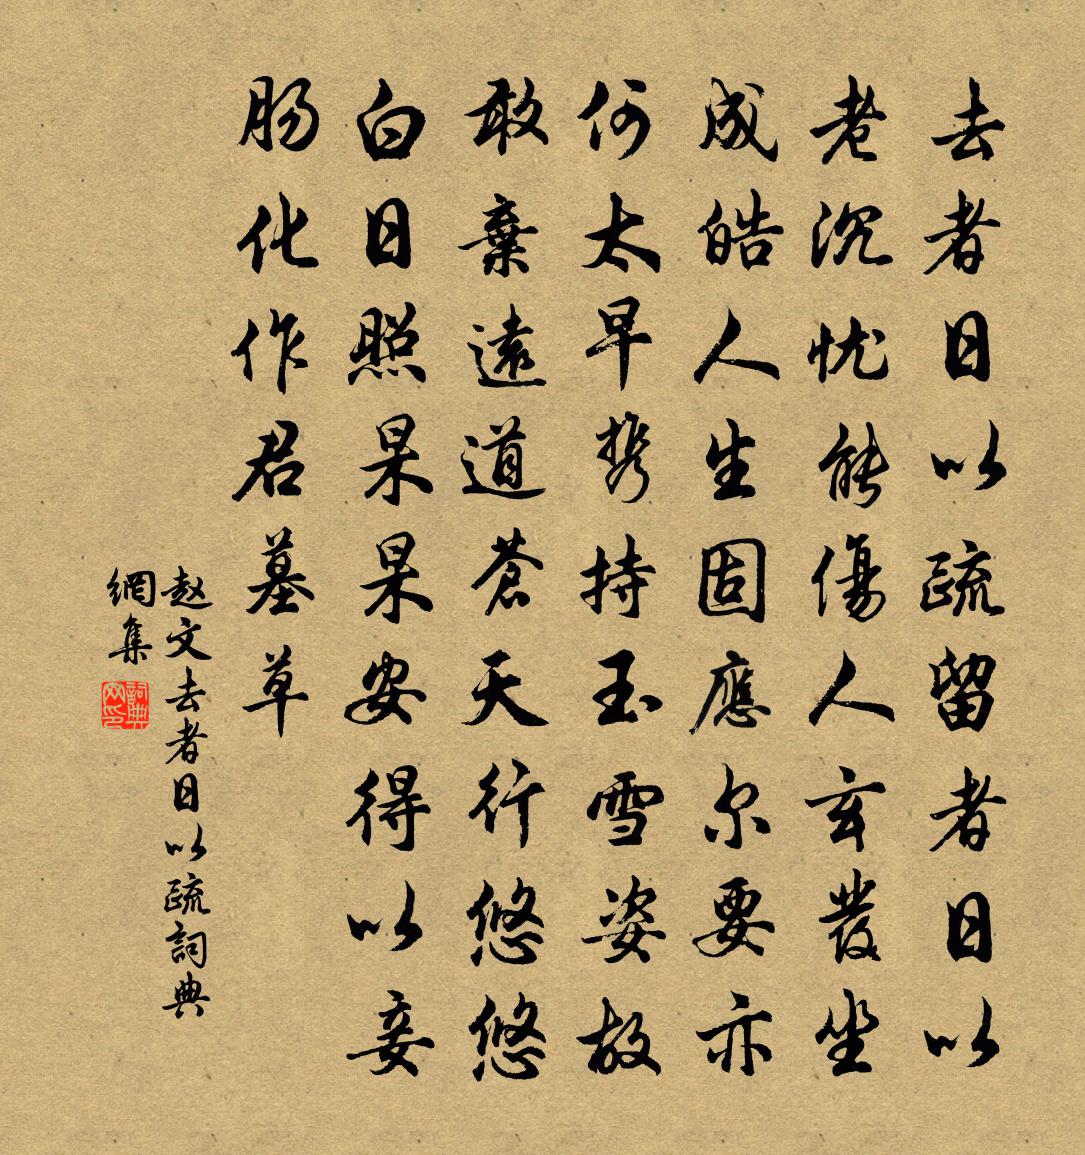 去者日以疏留者日以
老沉忧能傷人玄發坐
成皓人生固應尔要亦
何太早携持玉雪姿故
敢棄遠道蒼天行悠悠
白日照杲杲安得以妾
肠化作君墓草
赵文去者日以疏詞典
網集
詞典网印